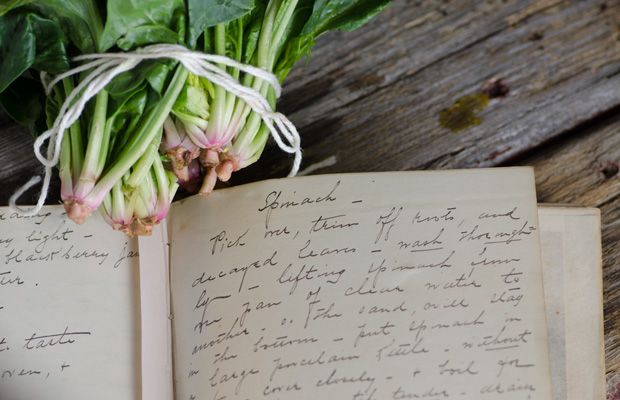 ny light -
blackberry jam
ter.
t. taste
oven, &
Spinach -
Pick over, trim off roots, and
decayed leaves - wash thorough-
ly - lifting spinach from
one pan of clear water to
another - so the sand, will stay
in the bottom - put spinach in
large porcelain kettle - without
cover closely - & boil for
tender - drain